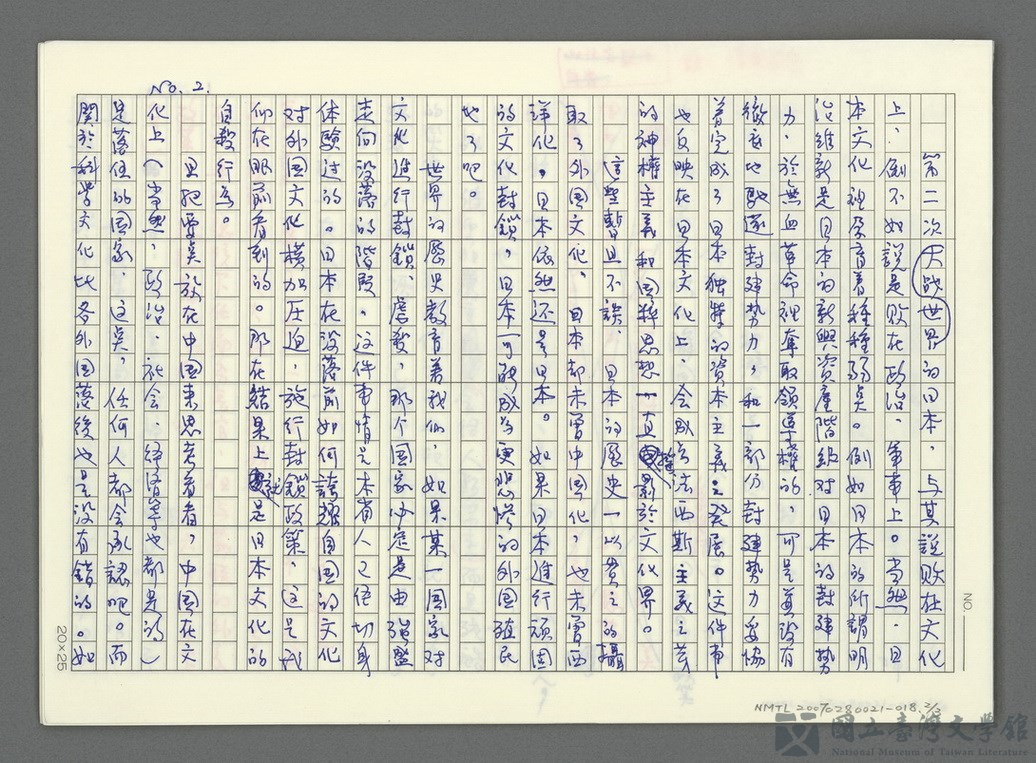 No. 2.
第二次大战世界的日本，与其說败在文化
上，倒不如說是败在政治、軍事上。当然，日
本文化裡孕育着种種弱点。例如日本的所謂明
治維新是日本的新興資產階級对日本的封建勢
力，於無血革命裡奪取領導權的，可是並没有
徹底地驅逐封建势力，和一部分封建勢力妥協
着完成了日本独特的資本主義之発展。这件事
也反映在日本文化上，会成為法西斯主義之芽
的神權主義和国粹思想一直影於文化界。
這些暫且不談，日本的歷史一以貫之的攝
取了外国文化，日本都未曾中国化，也未曾西
洋化。日本依然还是日本。如果日本進行頑固
的文化封鎖，日本可能成为更悲惨的外国殖民
地了吧。
世界的歷史教育着我们，如果某一国家对
文化進行封鎖、虐殺，那个国家必定是由强盛
走向没落的階段，这件事情是本省人已经切身
体験过的。日本在没落前如何誇耀自国的文化
对外国文化横加圧迫，施行封鎖政策，这是我
们在眼前看到的。那在結果上說是日本文化的
自殺行為。
且把要点放在中国来思考看看，中国在文
化上（当然，政治、社会、経済等也都是的）
是落伍的国家，这点，任何人都会承認吧。而
関於科学文化比各外国落後也是没有錯的。如
20×25
NO.
NMTL 20070280021-018. 2/3
國立臺灣文學館
National Museum of Taiwan Literature